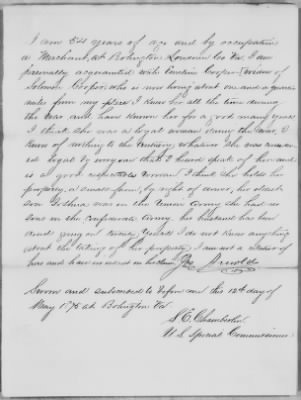 I am 54 years of age and by occupation
a Merchant, at Bolington Loudoun Co Va. I am
personally acquainted with Emeline Cooper (widow of
Solomon Cooper) who is now living about one and a quarter
miles from my place I knew her all the time during
the war and have known her for a good many years
I think she was a loyal woman during the war, I
know of nothing to the contrary whatever She was consid-
ered loyal by everyone that I heard speak of her and
is a good respectable woman I think she holds her
property, a small farm, by right of dower, her oldest
son Joshua was in the Union Army She had no
sons in the confederate Army, her husband has been
dead going on twenty years I do not know anything
about the taking of her property, I am not a relative of
hers and have no interest in her claim Arnold
Sworn and subscribed to before me this 12th day of
May 1875 at Bolington Va
S. E. Chamberlin
U S Special Commissioner